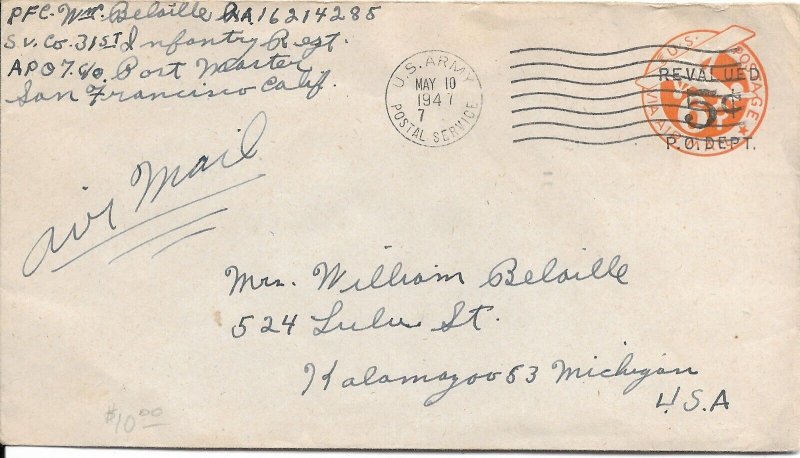 PFC. Wm. Beloille RA16214285
Sv. Co. 31ST Infantry Regt.
APO 7. c/o. Port Master
San Francisco Calif.
U.S. ARMY
MAY 10
1947
7
POSTAL SERVICE
U.S. POSTAGE
REVALUED
5¢
P.O. DEPT.
VIA AIR
Air Mail
Mrs. William Beloille
524 Lulu St.
Kalamazoo 53 Michigan
U.S.A
$10.00